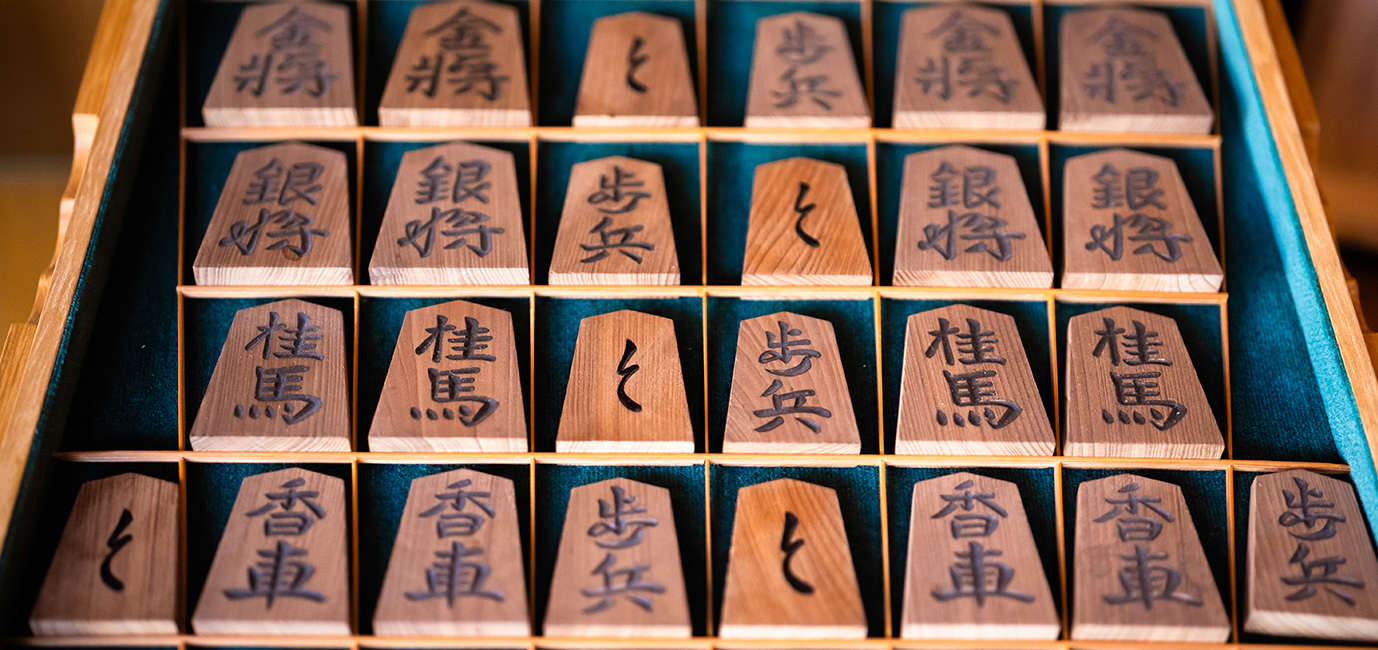 金将
金将
と
歩兵
金将
金将
銀将
銀将
歩兵
と
銀将
銀将
桂馬
桂馬
と
歩兵
桂馬
桂馬
と
香車
香車
歩兵
と
香車
香車
歩兵